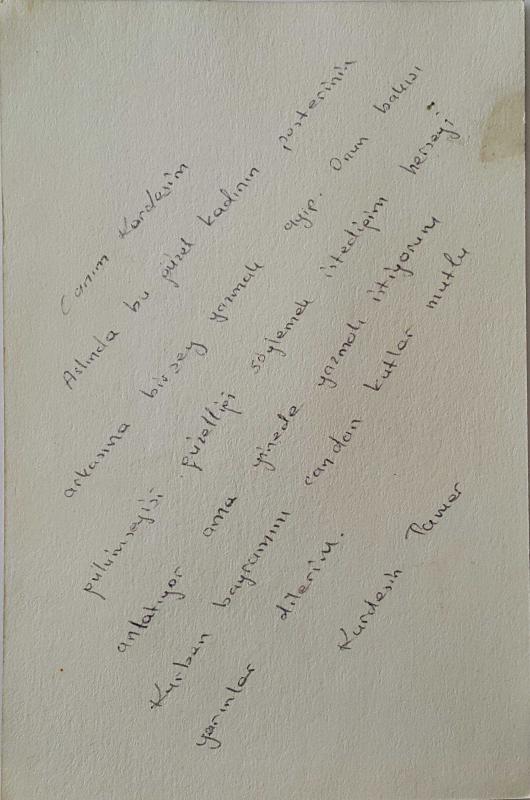 Canım Kardeşim
Aslında bu güzel kadının posterinin
arkasına birşey yazmak ayıp. Onun bakışı
gülümseyişi güzelliği söylemek istediğim herşeyi
anlatıyor ama yinede yazmak istiyorum
Kurban bayramını candan kutlar mutlu
yarınlar dilerim.
Kardeşin Tamer